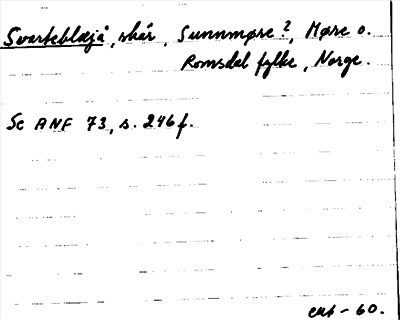 Svarteblæjå, skär, Sunnmøre?, Møre o.
Romsdal fylke, Norge.
Se ANF 73, s. 246 f.
- 60.